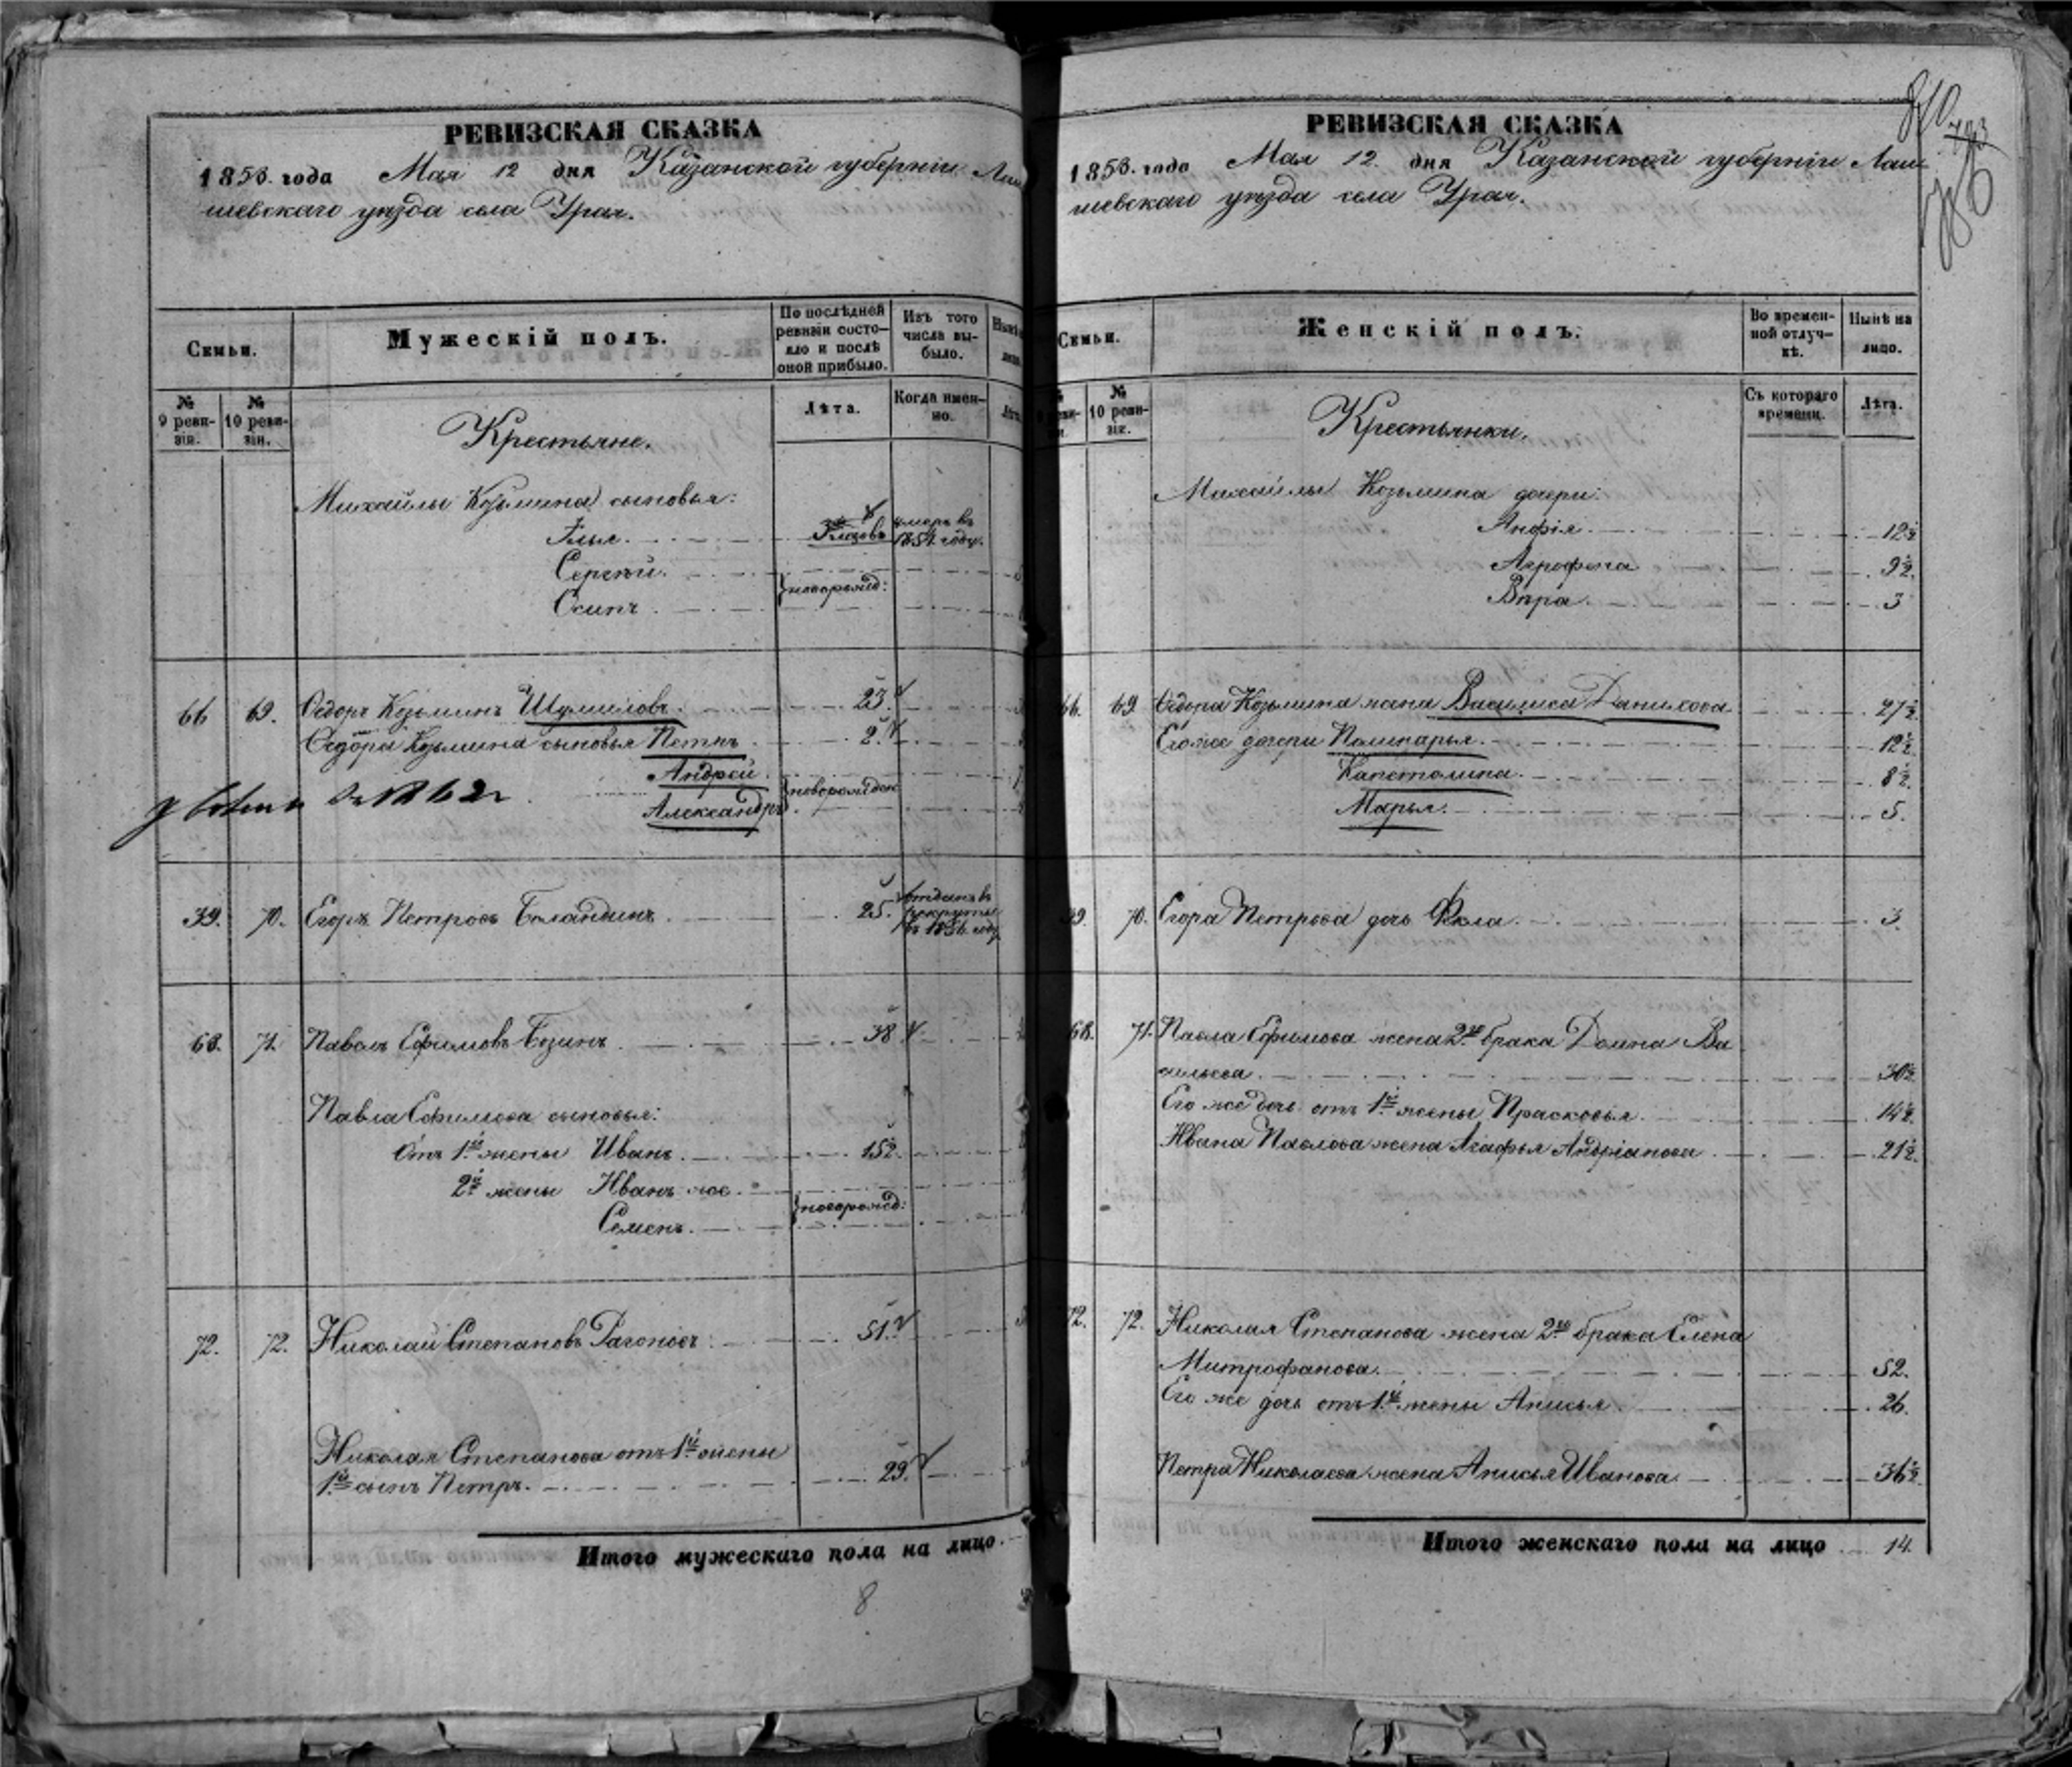 РЕВИЗСКАЯ СКАЗКА
1858 года Мая 12 дня Казанской губерніи Лаи
шевскаго уѣзда села Урая.
Семьи.
Мужескій полъ.
По послѣдней ревизіи состояло и послѣ оной прибыло.
Изъ того числа выбыло.
№ 9 ревизіи.
№ 10 ревизіи.
Лѣта.
Когда именно.
Крестьяне.
Михайлы Козьмина сыновья:
умеръ въ
1851 году.
Сергѣй.
Осипъ
новорожд:
66 69. Ѳедоръ Козьминъ Шумиловъ. 23.
Ѳедора Козьмина сыновья Петръ 2.
Андрей
Александръ
новорожден
39. 70. Егоръ Петровъ Баландинъ 25. отданъ въ
рекруты
въ 1856 году
68. 71. Павелъ Ефимовъ Бозинъ 38
Павла Ефимова сыновья:
Отъ 1й жены Иванъ. 15½
2й жены Иванъ же.
Семенъ.
новорожд:
72. 72. Николай Степановъ 51.
Николая Степанова отъ 1й жены
1й сынъ Петръ. 29.
Итого мужескаго пола на лицо
8
РЕВИЗСКАЯ СКАЗКА
1858 года Мая 12 дня Казанской губерніи Лаи
шевскаго уѣзда села Урая.
Семьи.
Женскій полъ.
Во временной отлучкѣ.
Нынѣ на лицо.
10 ревизіи.
Съ котораго времени.
Лѣта.
Крестьянки.
Михайлы Козьмина дочери:
Анфія 12½
Агрофена 9½
Вѣра 3
66. 69 Ѳедора Козьмина жена Василиса Данилова 27½
Его же дочери Поликарья 12½
Капетолина 8½
Марья. 5.
39. 70. Егора Петрова дочь Ѳекла 3.
68. 71. Павла Ефимова жена 2го брака Домна Ва
сильева 30½
Его же дочь отъ 1й жены Прасковья 14½
Ивана Павлова жена Агафья Андріанова 21½
72. 72. Николая Степанова жена 2го брака Елена
Митрофанова 52.
Его же дочь отъ 1й жены Анисья 26.
Петра Николаева жена Анисья Иванова 36½
Итого женскаго пола на лицо 14.